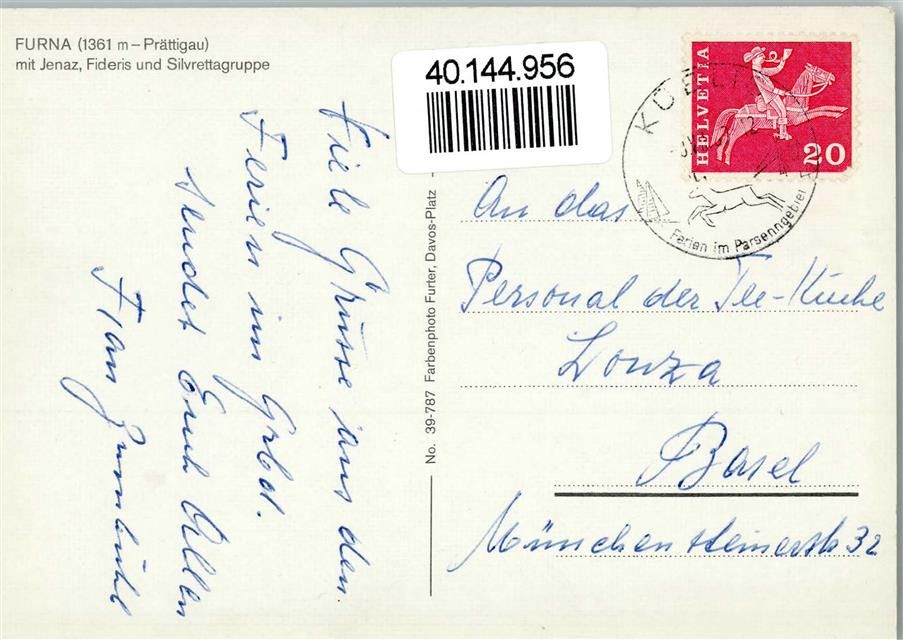 FURNA (1361 m – Prättigau)
mit Jenaz, Fideris und Silvrettagruppe
40.144.956
HELVETIA
20
KÜBLIS
Ferien im Parsenngebiet
Viele Grüsse aus den
Ferien im Grbd.
sendet Euch Allen
Frau Zumbühl
No. 39-787 Farbenphoto Furter, Davos-Platz
An das
Personal der Tee-Küche
Lonza
Basel
Münchensteinerstr 32